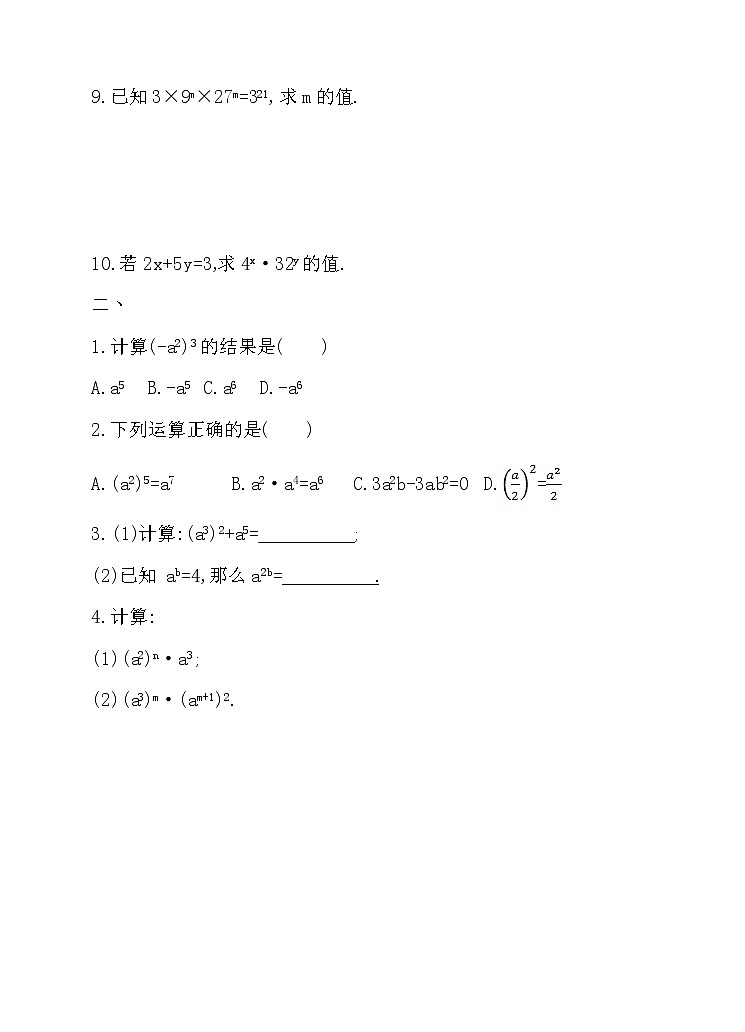 9.已知3×9ᵐ×27ᵐ=3²¹,求m的值.
10.若2x+5y=3,求4ˣ·32ʸ的值.
二、
1.计算(-a²)³的结果是(　　)
A.a⁵　B.-a⁵ C.a⁶　D.-a⁶
2.下列运算正确的是(　　)
A.(a²)⁵=a⁷　　B.a²·a⁴=a⁶　C.3a²b-3ab²=0 D.(a/2)²=a²/2
3.(1)计算:(a³)²+a⁵=__________;
(2)已知 aᵇ=4,那么a²ᵇ=__________.
4.计算:
(1)(a²)ⁿ·a³;
(2)(a³)ᵐ·(aᵐ⁺¹)².